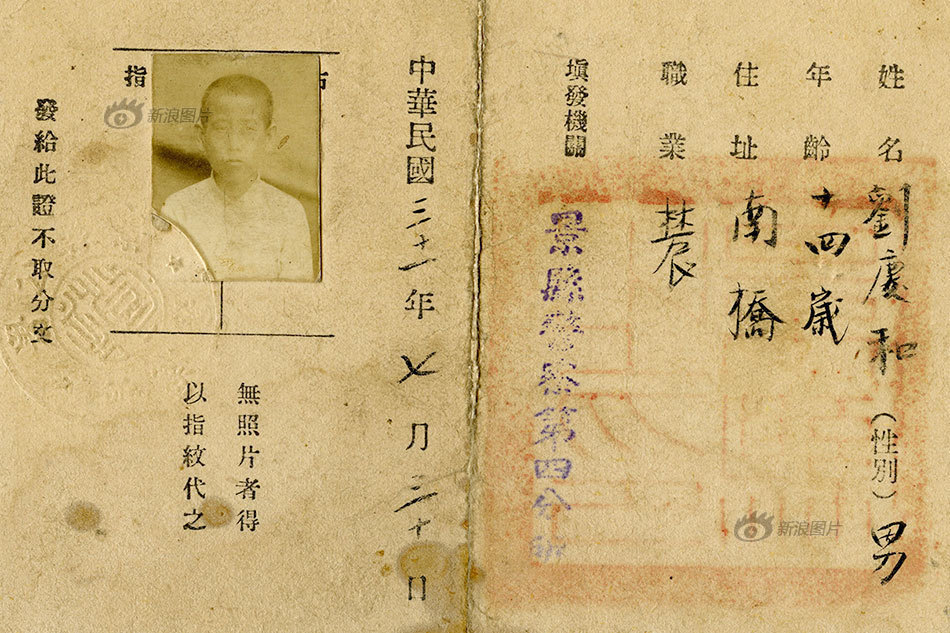 姓名 劉慶和 (性別) 男
年齡 十四歲
住址 南橋
職業 農
填發機關 景縣警察第四分
中華民國三十一年七月三十日
無照片者得
以指紋代之
指
發給此證不取分文
新浪图片
新浪图片